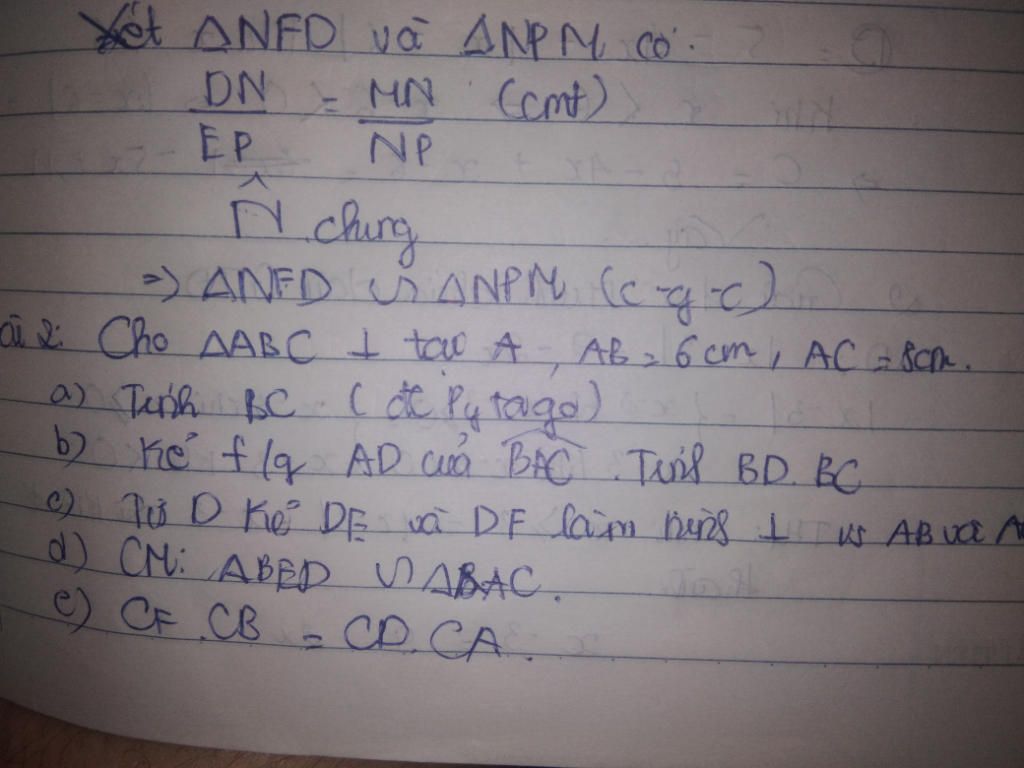 Xét ΔNFD và ΔNPM có.
DN/EP = MN/NP (cmt)
N̂ chung
=> ΔNFD ∽ ΔNPM (c-g-c)
2: Cho ΔABC ⊥ tại A, AB = 6cm, AC = 8cm.
a) Tính BC (đc Pytago)
b) Kẻ f/g AD của BAC. Tính BD. BC
c) Từ D kẻ DE và DF lần lượt ⊥ vs AB và A
d) CM: ΔBED ∽ ΔBAC.
e) CF.CB = CD.CA.